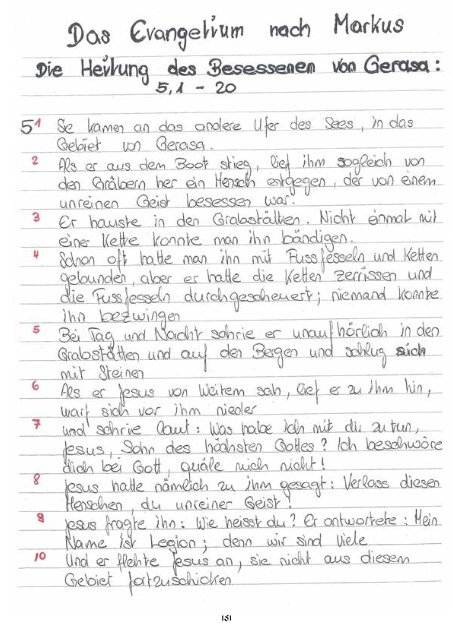 Das Evangelium nach Markus
Die Heilung des Besessenen von Gerasa:
5,1 - 20
5 1 Sie kamen an das andere Ufer des Sees, in das
Gebiet von Gerasa.
2 Als er aus dem Boot stieg, lief ihm sogleich von
den Gräbern her ein Mensch entgegen, der von einem
unreinen Geist besessen war.
3 Er hauste in den Grabstätten. Nicht einmal mit
einer Kette konnte man ihn bändigen.
4 Schon oft hatte man ihn mit Fussfesseln und Ketten
gebunden, aber er hatte die Ketten zerrissen und
die Fussfesseln durchgescheuert; niemand konnte
ihn bezwingen
5 Bei Tag und Nacht schrie er unaufhörlich in den
Grabstätten und auf den Bergen und schlug sich
mit Steinen
6 Als er Jesus von Weitem sah, lief er zu ihm hin,
warf sich vor ihm nieder
7 und schrie laut: Was habe ich mit dir zu tun,
Jesus, Sohn des höchsten Gottes? Ich beschwöre
dich bei Gott, quäle mich nicht!
8 Jesus hatte nämlich zu ihm gesagt: Verlass diesen
Menschen, du unreiner Geist!
9 Jesus fragte ihn: Wie heisst du? Er antwortete: Mein
Name ist Legion; denn wir sind viele
10 Und er flehte Jesus an, sie nicht aus diesem
Gebiet fortzuschicken
131